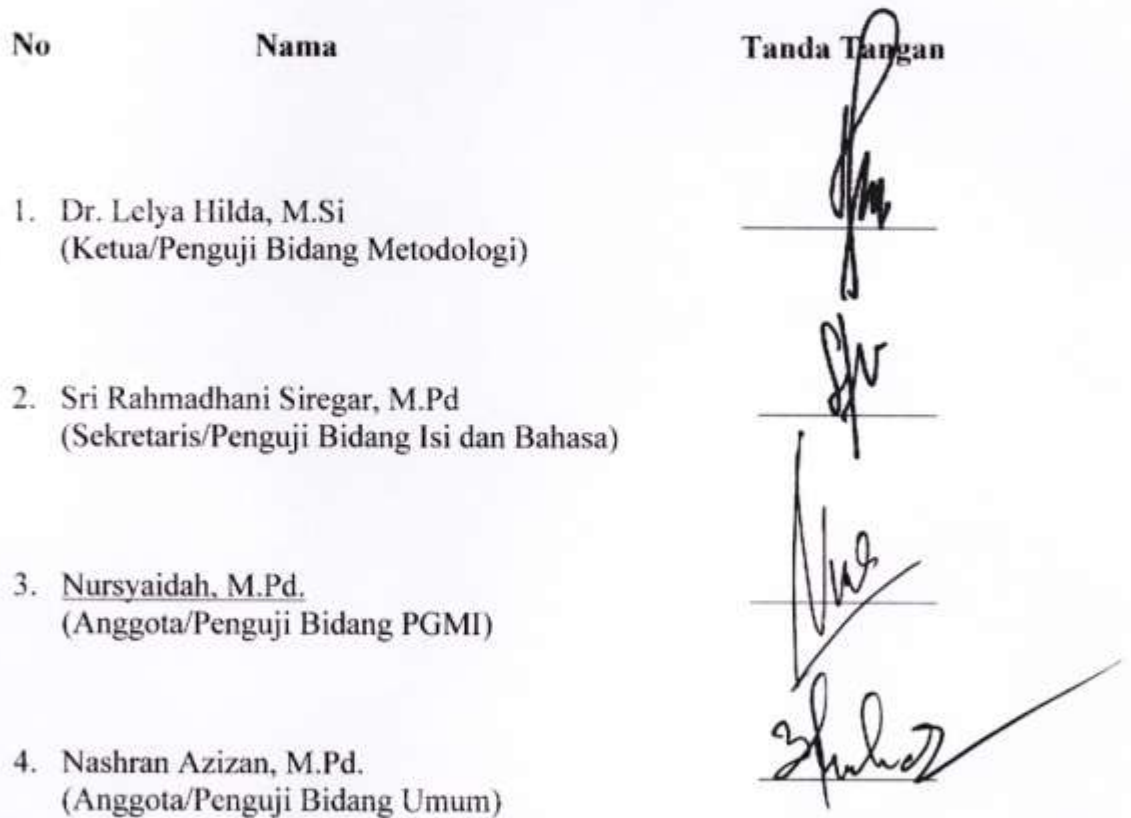 No Nama Tanda Tangan
1. Dr. Lelya Hilda, M.Si
(Ketua/Penguji Bidang Metodologi)
2. Sri Rahmadhani Siregar, M.Pd
(Sekretaris/Penguji Bidang Isi dan Bahasa)
3. Nursyaidah, M.Pd.
(Anggota/Penguji Bidang PGMI)
4. Nashran Azizan, M.Pd.
(Anggota/Penguji Bidang Umum)